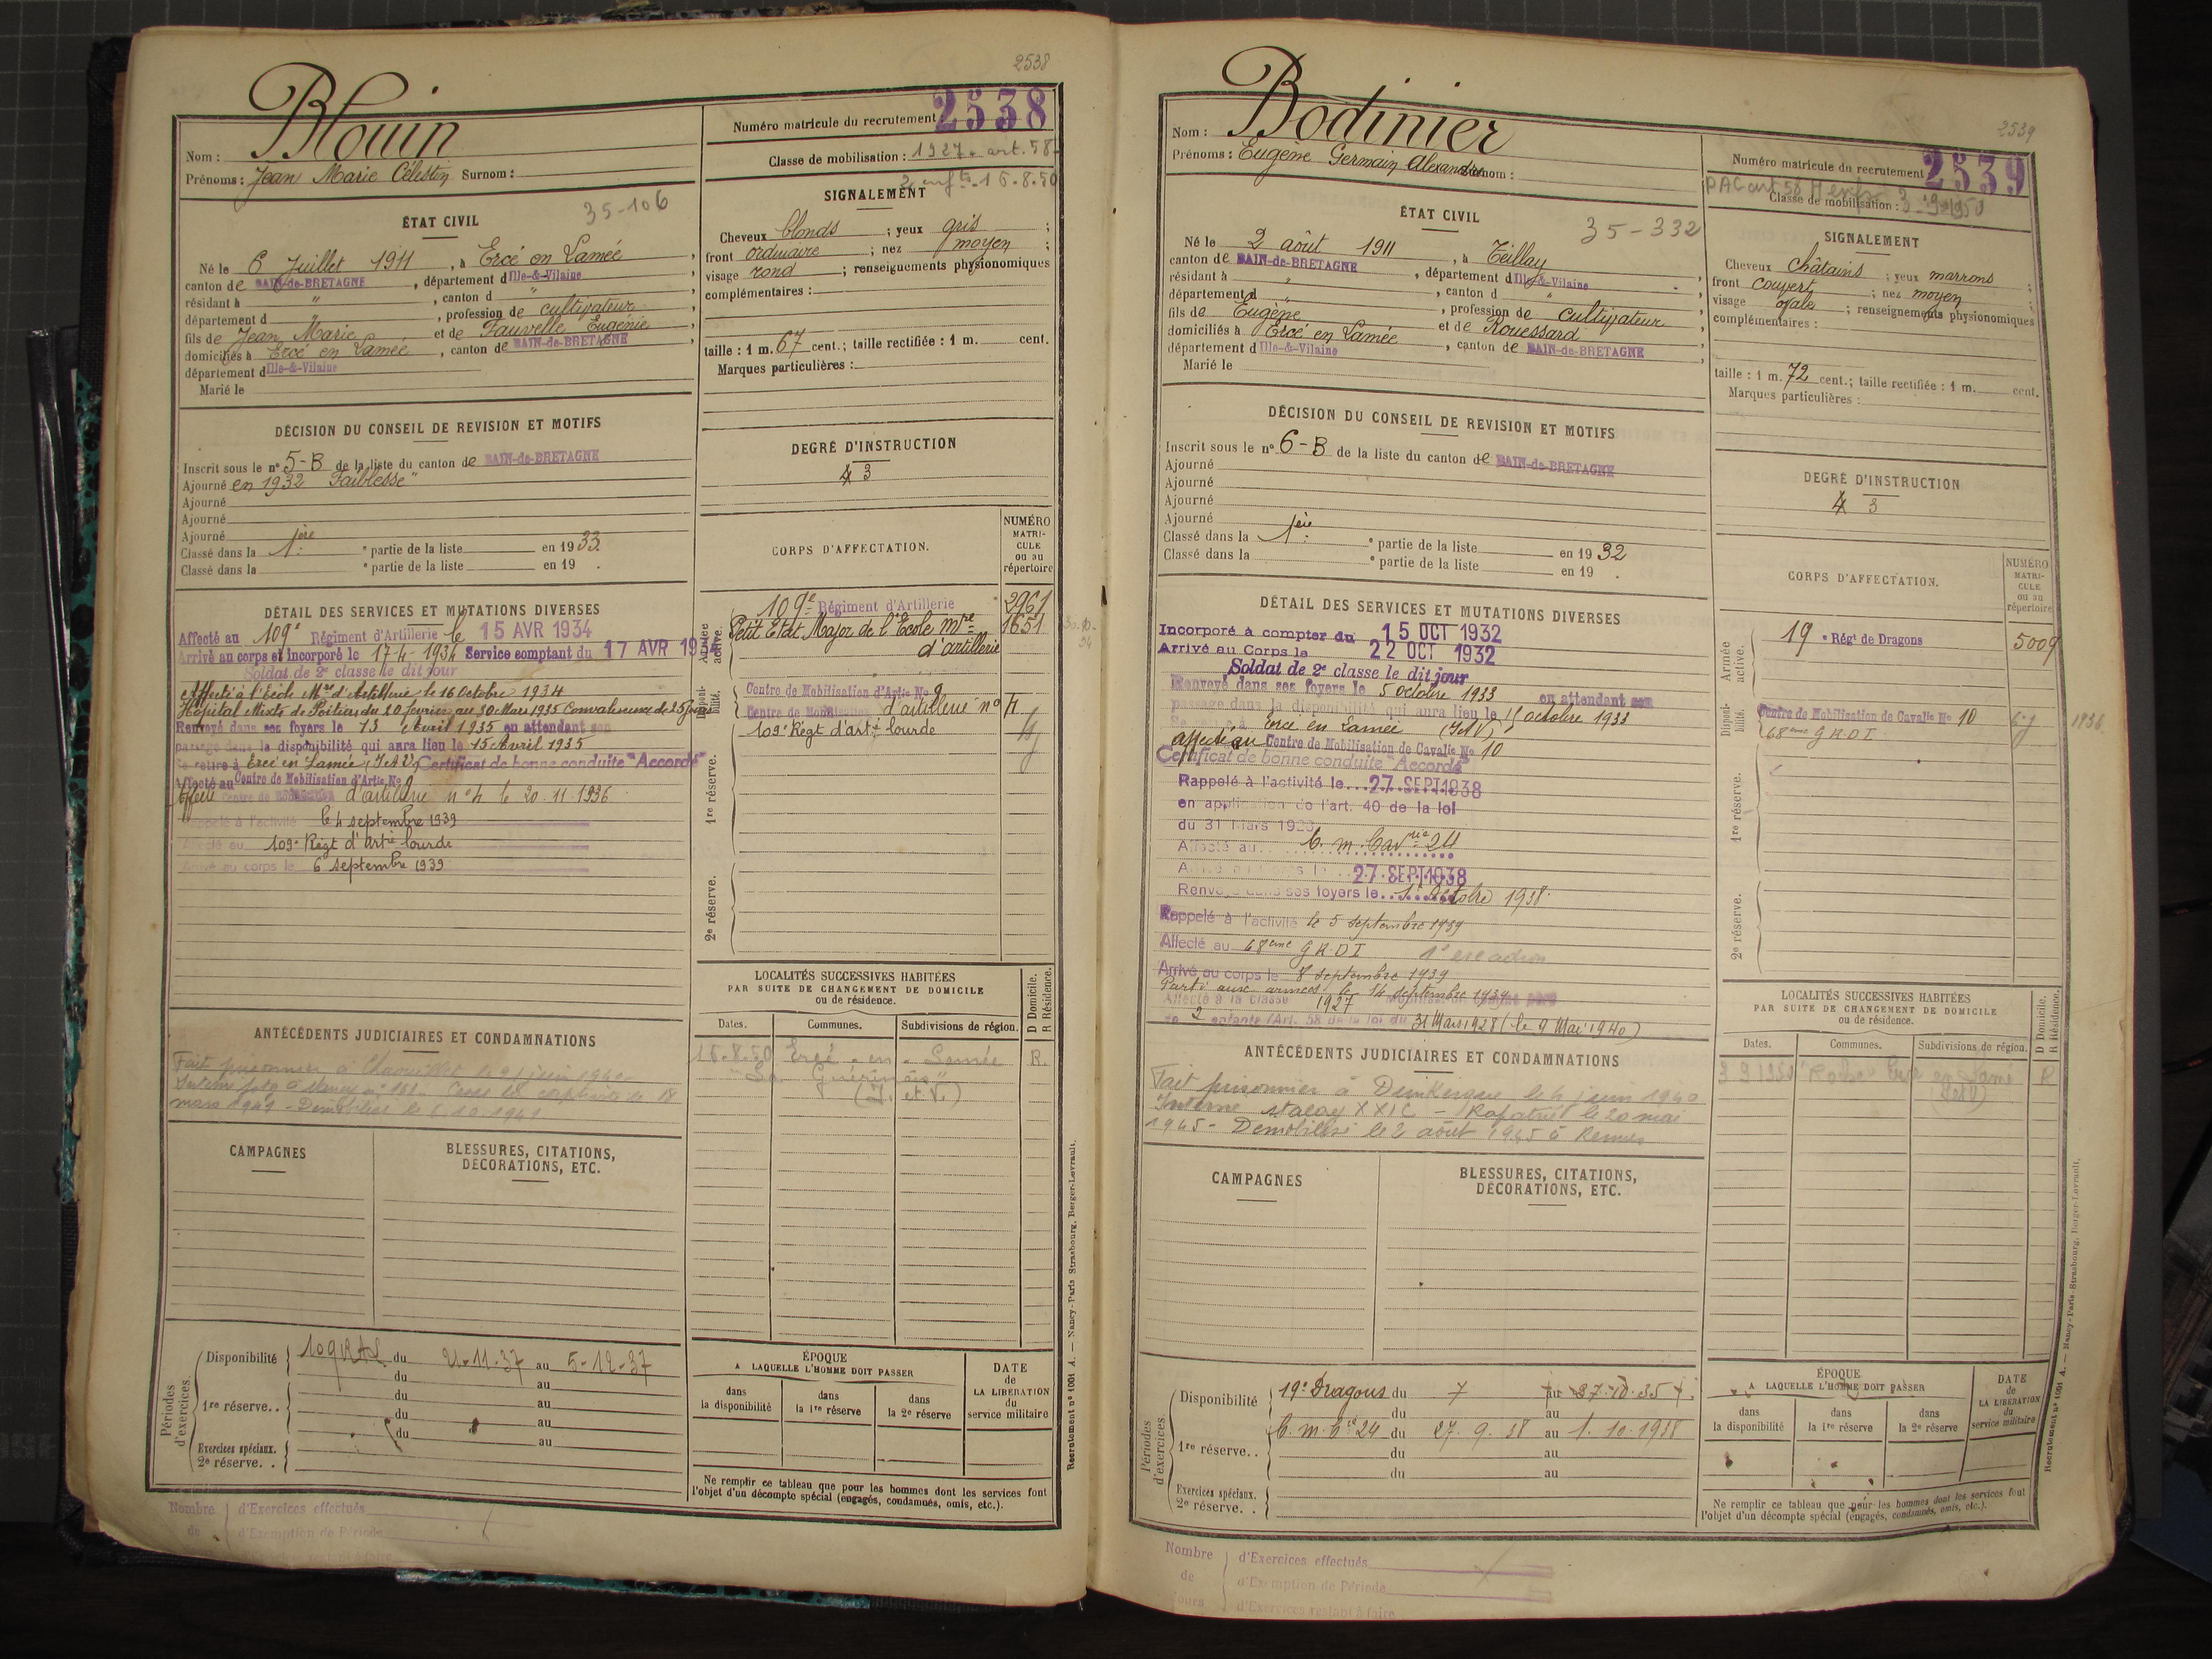 2538
Blouin
Nom :
Prénoms : Jean Marie Célestin Surnom :
Numéro matricule du recrutement 2538
Classe de mobilisation : 1927 - art. 58 -
2 enfts - 16.8.50
35-106
ÉTAT CIVIL
Né le 6 Juillet 1911, à Ercé en Lamée,
canton de BAIN-de-BRETAGNE, département d Ille-&-Vilaine,
résidant à ", canton d ",
département d ", profession de cultivateur,
fils de Jean Marie et de Fauvelle Eugénie,
domiciliés à Ercé en Lamée, canton de BAIN-de-BRETAGNE,
département d Ille-&-Vilaine
Marié le
SIGNALEMENT
Cheveux blonds ; yeux gris ;
front ordinaire ; nez moyen ;
visage rond ; renseignements physionomiques
complémentaires :
taille : 1 m. 67 cent.; taille rectifiée : 1 m. cent.
Marques particulières :
DÉCISION DU CONSEIL DE REVISION ET MOTIFS
Inscrit sous le n° 5-B de la liste du canton de BAIN-de-BRETAGNE
Ajourné en 1932 "Faiblesse"
Ajourné
Ajourné
Ajourné
Classé dans la 1ère e partie de la liste en 1933.
Classé dans la e partie de la liste en 19 .
DEGRÉ D'INSTRUCTION
4 3
CORPS D'AFFECTATION.
NUMÉRO MATRI-CULE ou au répertoire
DÉTAIL DES SERVICES ET MUTATIONS DIVERSES
Affecté au 109e Régiment d'Artillerie le 15 AVR 1934
Arrivé au corps et incorporé le 17-4-1934 Service comptant du 17 AVR 1934
Soldat de 2e classe le dit jour
Affecté à l'Ecole Mre d'Artillerie le 16 Octobre 1934
Hôpital Mixte de Poitiers du 20 février au 30 Mars 1935 Convalescence de 25 jours
Renvoyé dans ses foyers le 13 Avril 1935 en attendant son
passage dans la disponibilité qui aura lieu le 15 Avril 1935
Se retire à Ercé en Lamée (I & V) Certificat de bonne conduite "Accordé"
Affecté au Centre de Mobilisation d'Artie No 9
Affecté Centre de Mobilisation d'artillerie n° 4 le 20.11.1936
Rappelé à l'activité le 4 septembre 1939
Affecté au 109e Régt d'Artie lourde
Arrivé au corps le 6 septembre 1939
Armée active.
109e Régiment d'Artillerie 2961
Petit Etat Major de l'Ecole mre d'artillerie 1651
Disponibilité.
Centre de Mobilisation d'Artie No 9
Centre de Mobilisation d'artillerie n° 4
109e Régt d'artie lourde
1re réserve.
2e réserve.
LOCALITÉS SUCCESSIVES HABITÉES
PAR SUITE DE CHANGEMENT DE DOMICILE
ou de résidence.
D Domicile. R Résidence.
Dates. Communes. Subdivisions de région.
16.8.50 Ercé - en - Lamée R.
(I. et V.)
ANTÉCÉDENTS JUDICIAIRES ET CONDAMNATIONS
Fait prisonnier à
mars 1941 - Démobilisé le
CAMPAGNES
BLESSURES, CITATIONS,
DÉCORATIONS, ETC.
Périodes d'exercices.
Disponibilité 109 RAL du 21-11-37 au 5-12-37
du au
1re réserve. . du au
du au
du au
Exercices spéciaux.
2e réserve. .
ÉPOQUE
A LAQUELLE L'HOMME DOIT PASSER
dans la disponibilité
dans la 1re réserve
dans la 2e réserve
DATE de LA LIBÉRATION du service militaire
Ne remplir ce tableau que pour les hommes dont les services font
l'objet d'un décompte spécial (engagés, condamnés, omis, etc.).
Recrutement n° 1001 A. — Nancy-Paris-Strasbourg, Berger-Levrault.
Nombre d'Exercices effectués
de d'Exemption de Période
2539
Bodinier
Nom :
Prénoms : Eugène Germain Alexandre Surnom :
Numéro matricule du recrutement 2539
Classe de mobilisation :
35-332
ÉTAT CIVIL
Né le 2 août 1911, à Teillay,
canton de BAIN-de-BRETAGNE, département d Ille-&-Vilaine,
résidant à ", canton d ",
département d ", profession de cultivateur,
fils de Eugène et de Rouessard,
domiciliés à Ercé en Lamée, canton de BAIN-de-BRETAGNE,
département d Ille-&-Vilaine
Marié le
SIGNALEMENT
Cheveux châtains ; yeux marrons ;
front couvert ; nez moyen ;
visage ovale ; renseignements physionomiques
complémentaires :
taille : 1 m. 72 cent.; taille rectifiée : 1 m. cent.
Marques particulières :
DÉCISION DU CONSEIL DE REVISION ET MOTIFS
Inscrit sous le n° 6-B de la liste du canton de BAIN-de-BRETAGNE
Ajourné
Ajourné
Ajourné
Ajourné
Classé dans la 1ère e partie de la liste en 1932
Classé dans la e partie de la liste en 19 .
DEGRÉ D'INSTRUCTION
4 3
CORPS D'AFFECTATION.
NUMÉRO MATRI-CULE ou au répertoire
DÉTAIL DES SERVICES ET MUTATIONS DIVERSES
Incorporé à compter du 15 OCT 1932
Arrivé au Corps le 22 OCT 1932
Soldat de 2e classe le dit jour
Renvoyé dans ses foyers le 5 octobre 1933 en attendant son
passage dans la disponibilité qui aura lieu le 15 octobre 1933
Se retire à Ercé en Lamée (I & V)
affecté au Centre de Mobilisation de Cavalie No 10
Certificat de bonne conduite "Accordé"
Rappelé à l'activité le 27 SEPT 1938
en application de l'art. 40 de la loi
du 31 Mars 1928
Affecté au C. m. Cavrie 24
Arrivé au corps le 27 SEPT 1938
Renvoyé dans ses foyers le 1er Octobre 1938
Rappelé à l'activité le 5 septembre 1939
Affecté au 68eme G R D I 1e escadron
Arrivé au corps le 8 septembre 1939
Parti aux armées le 14 septembre 1939
Affecté à la classe 1927
de 2 enfants (Art. 58 de la loi du 31 Mars 1928 (le 9 Mai 1940)
Armée active.
19e Régt de Dragons 5009
Disponibilité.
Centre de Mobilisation de Cavalie No 10 1936
68eme G R D I
1re réserve.
2e réserve.
LOCALITÉS SUCCESSIVES HABITÉES
PAR SUITE DE CHANGEMENT DE DOMICILE
ou de résidence.
D Domicile. R Résidence.
Dates. Communes. Subdivisions de région.
Ercé en Lamée R
ANTÉCÉDENTS JUDICIAIRES ET CONDAMNATIONS
Fait prisonnier à Dunkerque le 4 juin 1940
Interné stalag XXI C - Rapatrié le 20 mai
1945 - Démobilisé le 2 août 1945 à Rennes
CAMPAGNES
BLESSURES, CITATIONS,
DÉCORATIONS, ETC.
Périodes d'exercices.
Disponibilité 19e Dragons du 7 au 27.10.35
du au
1re réserve. . C. m. Cie 24 du 27. 9. 38 au 1. 10. 1938
du au
du au
Exercices spéciaux.
2e réserve. .
ÉPOQUE
A LAQUELLE L'HOMME DOIT PASSER
dans la disponibilité
dans la 1re réserve
dans la 2e réserve
DATE de LA LIBÉRATION du service militaire
Ne remplir ce tableau que pour les hommes dont les services font
l'objet d'un décompte spécial (engagés, condamnés, omis, etc.).
Recrutement n° 1001 A. — Nancy-Paris-Strasbourg, Berger-Levrault.
Nombre d'Exercices effectués
de d'Exemption de Période
jours d'Exercices restant à faire